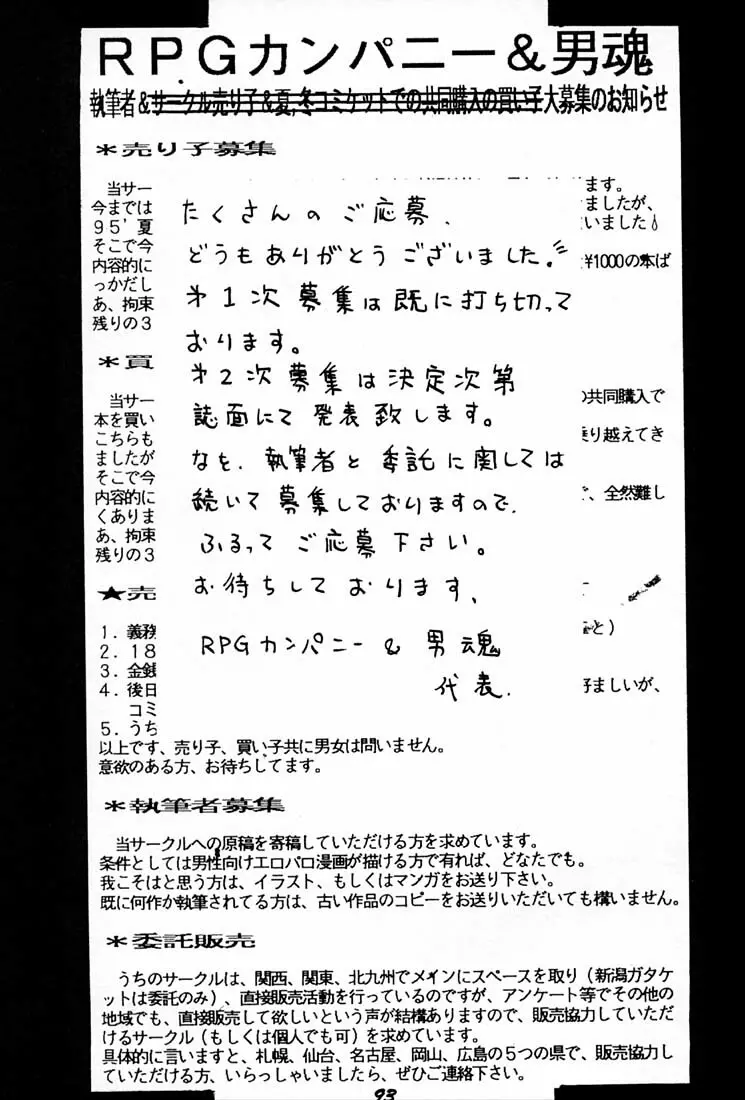 RPGカンパニー&男魂
執筆者&サークル売り子&夏,冬コミケットでの共同購入の買い子大募集のお知らせ
*売り子募集
当サー
ます。
今までは
ましたが、
95'夏
いました
そこで今
内容的に
¥1000の本ば
っかだし
あ、拘束
残りの3
たくさんのご応募、
どうもありがとうございました!
第1次募集は既に打ち切って
おります。
第2次募集は決定次第
誌面にて発表致します。
なを、執筆者と委託に関しては
続いて募集しておりますので、
ふるってご応募下さい。
お待ちしております、
RPGカンパニー&男魂
代表.
*買
当サー
の共同購入で
本を買い
こちらも
乗り越えてき
ましたが
そこで今
内容的に
、全然難し
くありま
あ、拘束
残りの3
★売
1.義務
と)
2.18
3.金銭
4.後日
好ましいが、
コミ
5.うち
以上です、売り子、買い子共に男女は問いません。
意欲のある方、お待ちしてます。
*執筆者募集
当サークルへの原稿を寄稿していただける方を求めています。
条件としては男性向けエロパロ漫画が描ける方で有れば、どなたでも。
我こそはと思う方は、イラスト、もしくはマンガをお送り下さい。
既に何作か執筆されてる方は、古い作品のコピーをお送りいただいても構いません。
*委託販売
うちのサークルは、関西、関東、北九州でメインにスペースを取り(新潟ガタケ
ットは委託のみ)、直接販売活動を行っているのですが、アンケート等でその他の
地域でも、直接販売して欲しいという声が結構ありますので、販売協力していただ
けるサークル(もしくは個人でも可)を求めています。
具体的に言いますと、札幌、仙台、名古屋、岡山、広島の5つの県で、販売協力し
ていただける方、いらっしゃいましたら、ぜひご連絡下さい。
93